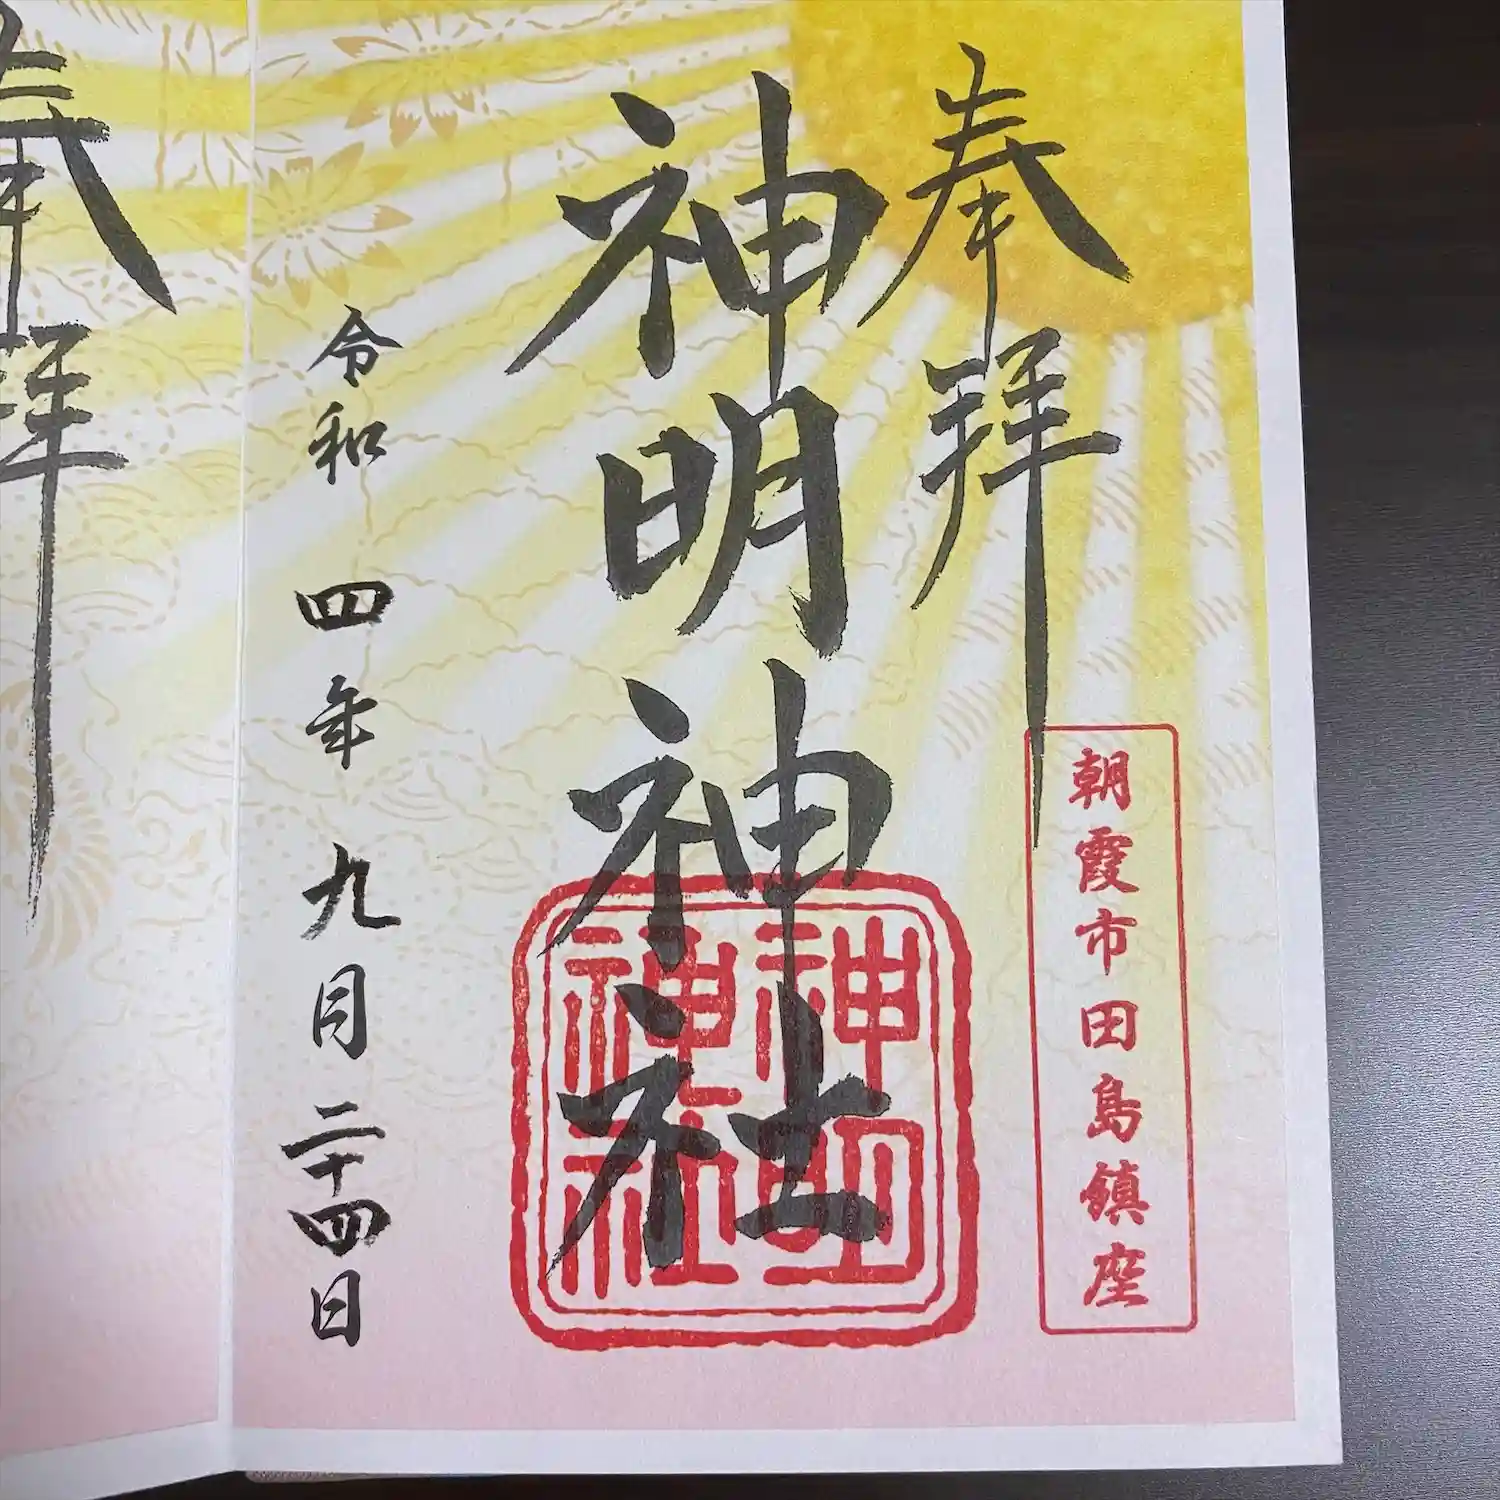 奉拝
朝霞市田島鎮座
神明神社
神明
神社
令和四年九月二十四日
奉拝